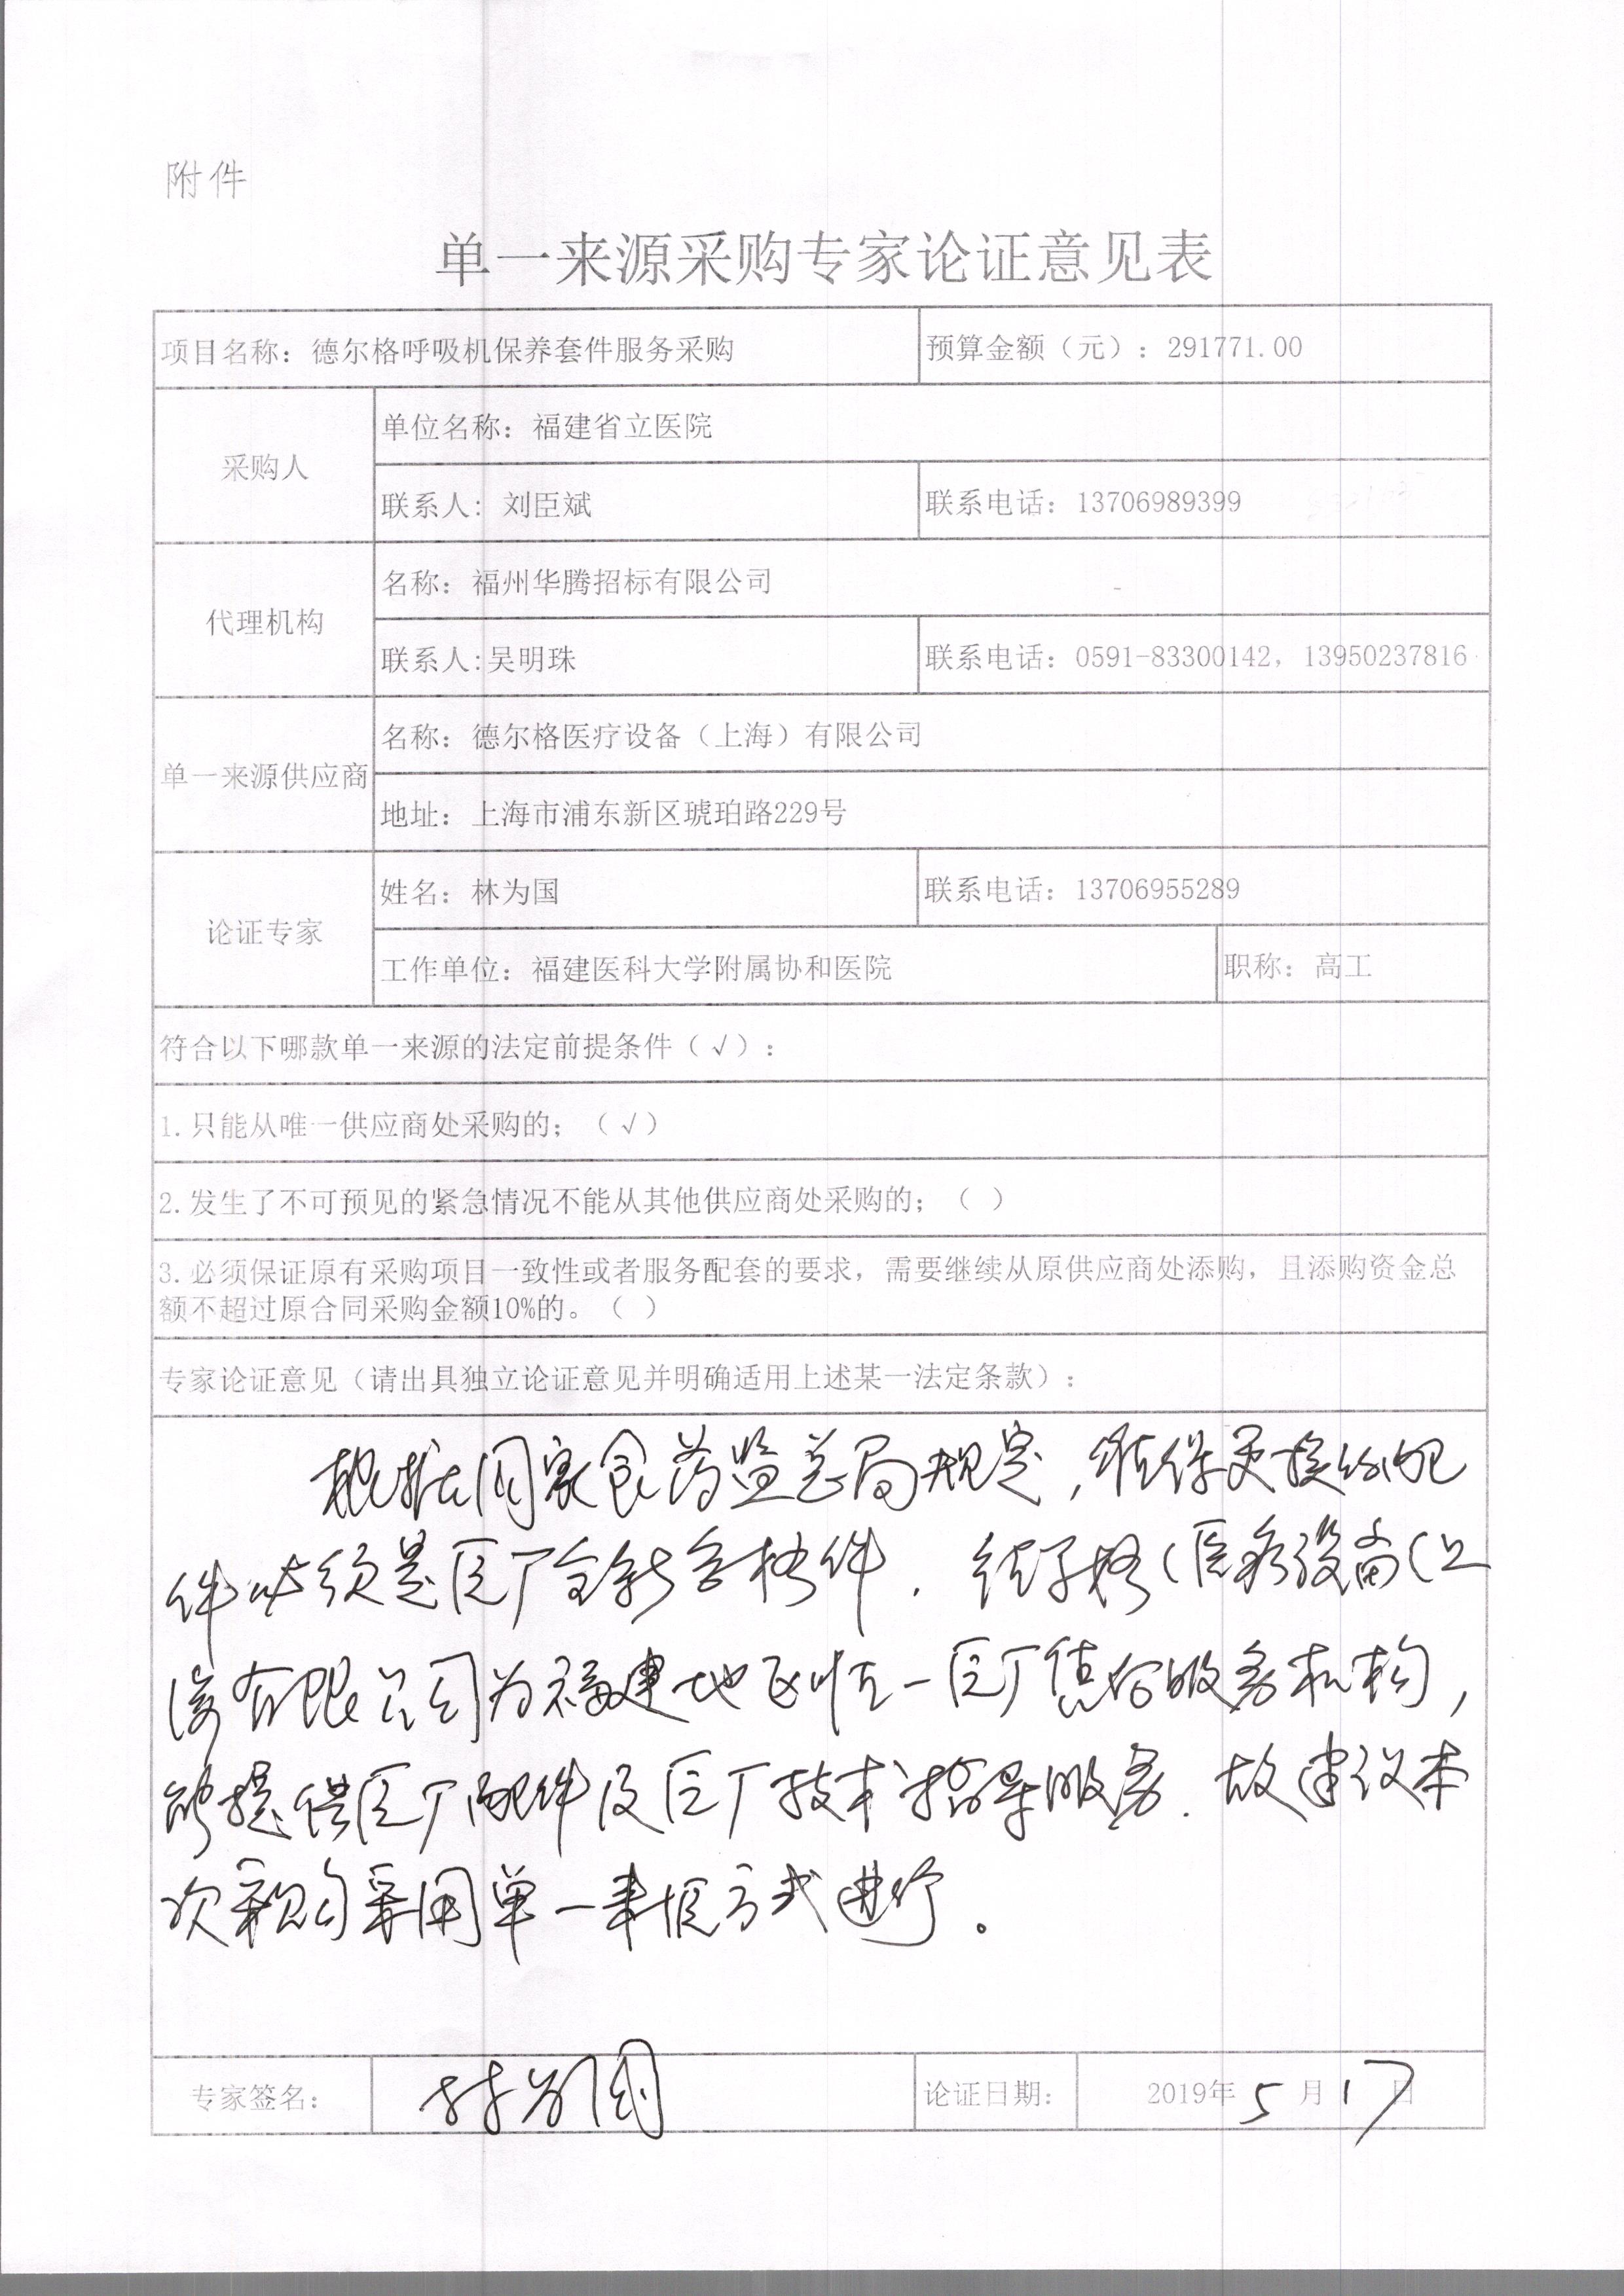 附件
单一来源采购专家论证意见表
项目名称：德尔格呼吸机保养套件服务采购 预算金额（元）：291771.00
采购人
单位名称：福建省立医院
联系人：刘臣斌 联系电话：13706989399
代理机构
名称：福州华腾招标有限公司
联系人:吴明珠 联系电话：0591-83300142，13950237816
单一来源供应商
名称：德尔格医疗设备（上海）有限公司
地址：上海市浦东新区琥珀路229号
论证专家
姓名：林为国 联系电话：13706955289
工作单位：福建医科大学附属协和医院 职称：高工
符合以下哪款单一来源的法定前提条件（√）：
1.只能从唯一供应商处采购的；（√）
2.发生了不可预见的紧急情况不能从其他供应商处采购的；（ ）
3.必须保证原有采购项目一致性或者服务配套的要求，需要继续从原供应商处添购，且添购资金总
额不超过原合同采购金额10%的。（ ）
专家论证意见（请出具独立论证意见并明确适用上述某一法定条款）：
根据国家食药监总局规定，维保更换的配
件必须是原厂全新合格件．德尔格（医疗设备（上
海有限公司为福建地区唯一原厂售后服务机构，
能提供原厂配件及原厂技术指导服务．故建议本
次采购采用单一来源方式进行。
专家签名： 林为国 论证日期： 2019年5月17日